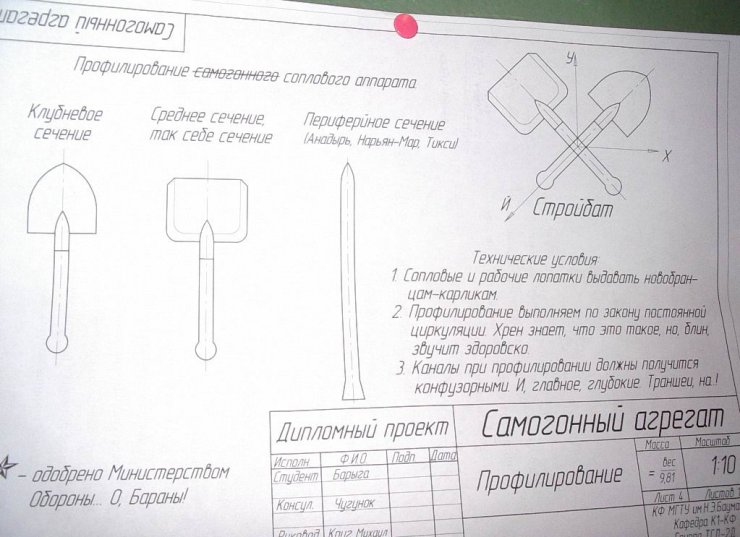 Самогонный агрегат
Профилирование самогонного соплового аппарата
Клубневое
сечение
Среднее сечение,
так себе сечение
Периферийное сечение
(Анадырь, Нарьян-Мар, Тикси)
У
Х
Й
Стройбат
Технические условия
1. Сопловые и рабочие лопатки выдавать новобран-
цам-карликам.
2. Профилирование выполняем по закону постоянной
циркуляции. Хрен знает, что это такое, но, блин,
звучит здоровско.
3. Каналы при профилировании должны получится
конфузорными. И, главное, глубокие. Траншеи, на..!
- одобрено Министерством
Обороны... О, Бараны!
Дипломный проект
Самогонный агрегат
Исполн Ф И О Подп Дата
Студент Барыга
Консул. Чугунок
Руковод Криг Михаил
Профилирование
Масса Масштаб
= вес
9,81
1:10
Лист 4 Листов
КФ МГТУ им Н.Э.Баума
Кафедра К1-КФ